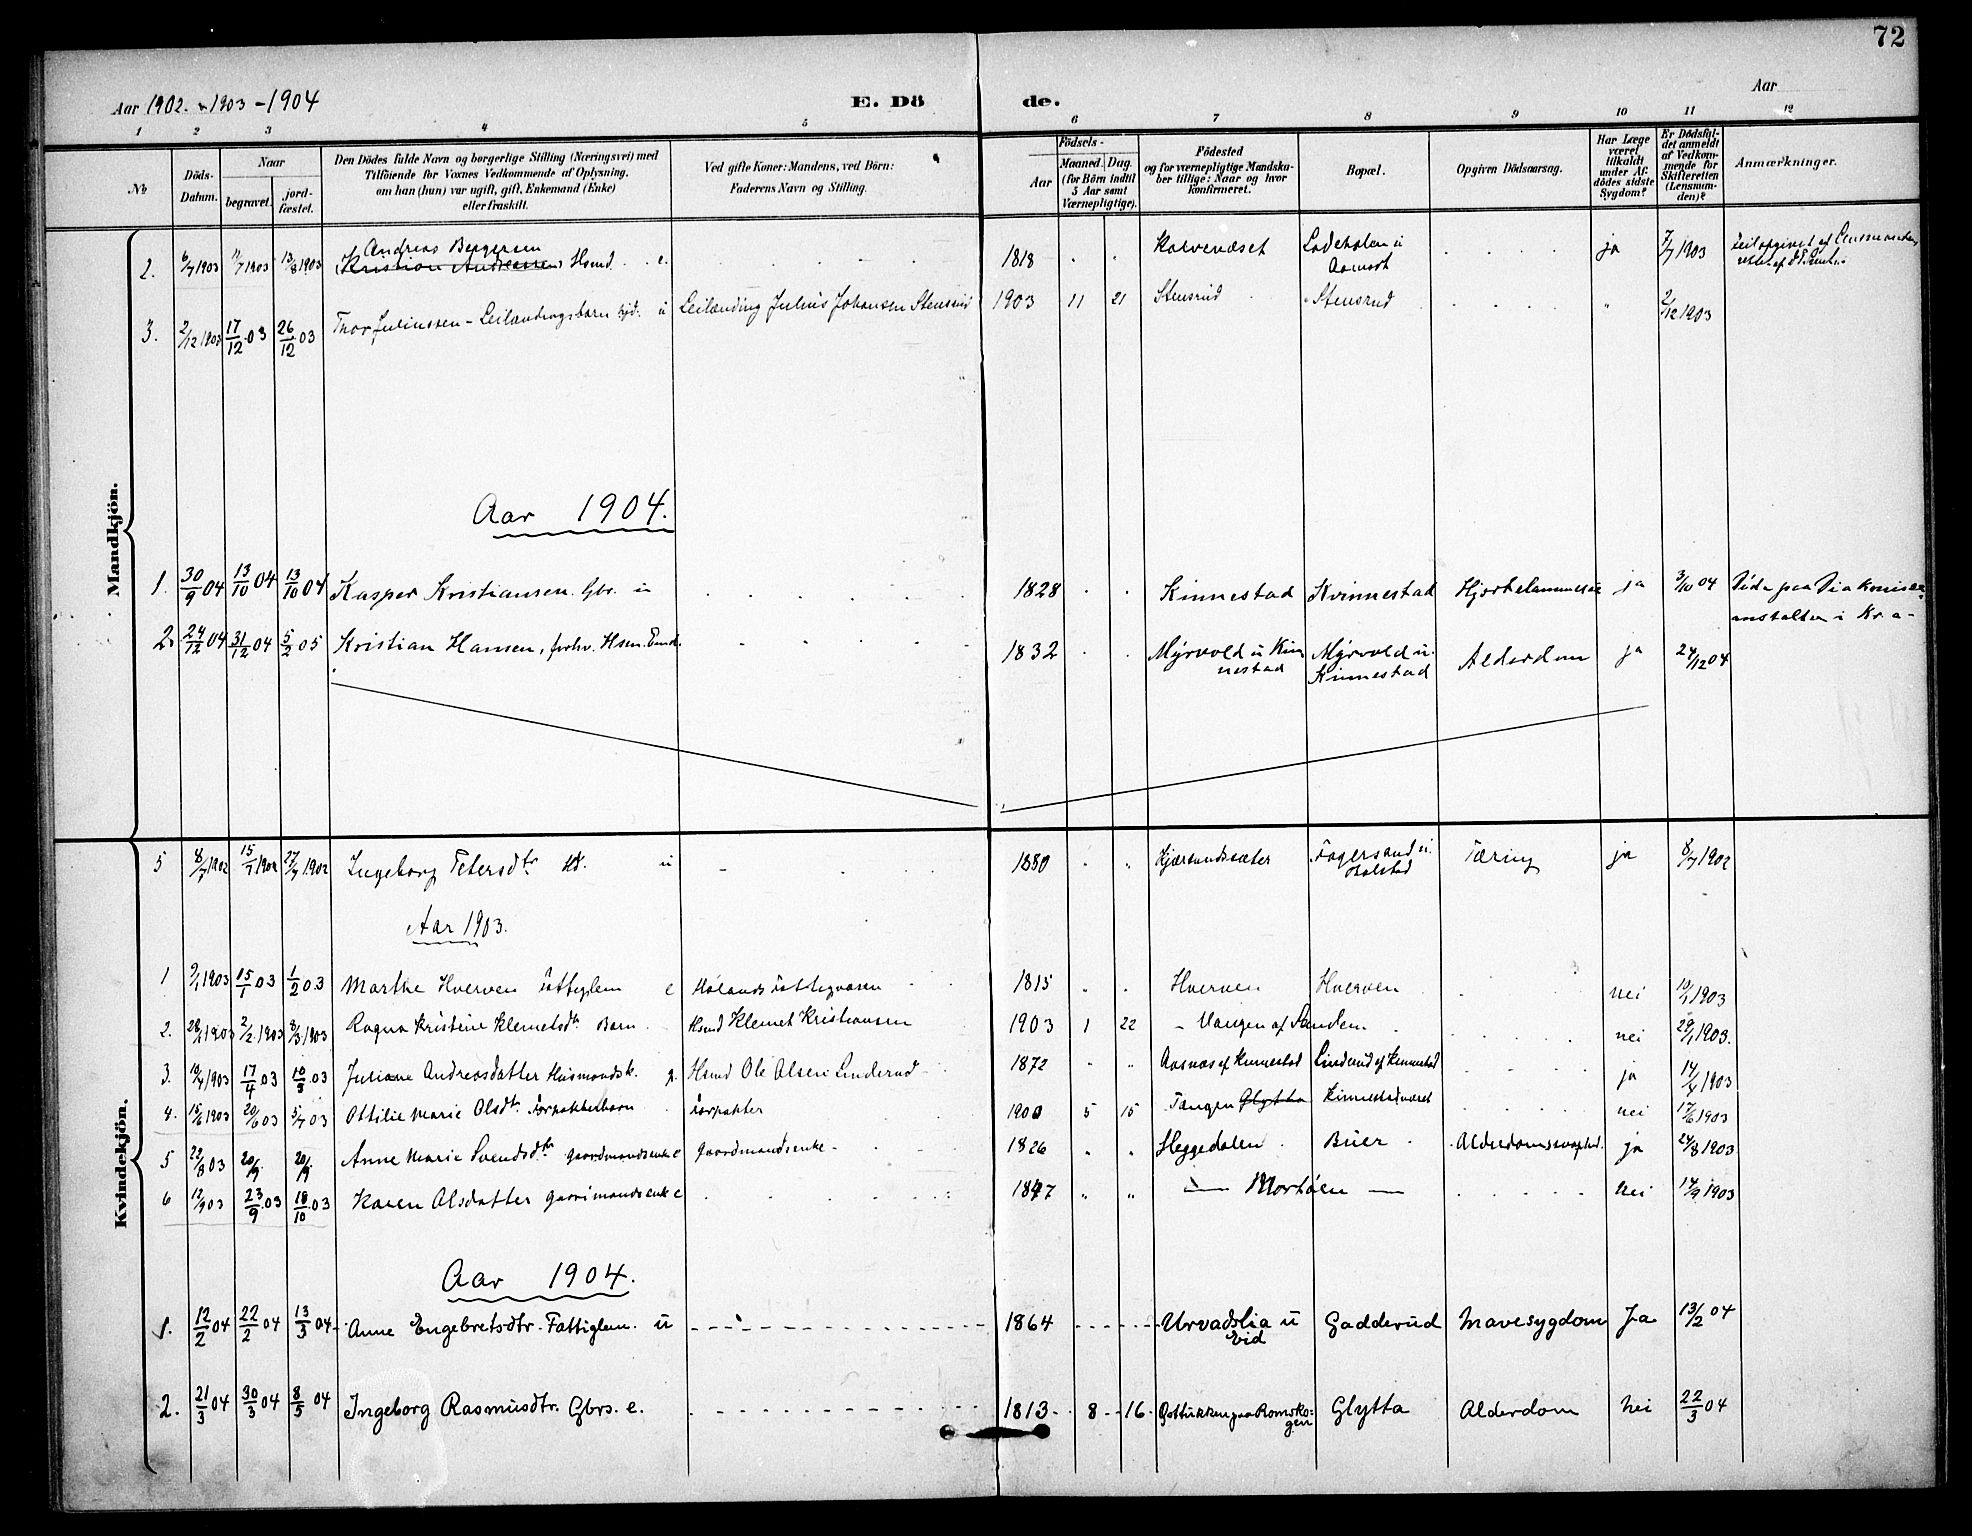 72
Aar 1902. 1903 - 1904
E. Dö
de.
Aar
1 2 3 4 5 6 7 8 9 10 11 12
No
Döds-Datum.
Naar
begravet.
jord-fæstet.
Den Dödes fulde Navn og borgerlige Stilling (Næringsvei) med
Tilföiende for Voxnes Vedkommende af Oplysning.
om han (hun) var ugift, gift, Enkemand (Enke)
eller fraskilt.
Ved gifte Koner: Mandens, ved Börn:
Faderens Navn og Stilling.
Födsels-
Aar
Maaned. Dag.
(for Börn indtil
5 Aar samt
Værnepligtige).
Födested
og for værnepligtige Mandska-
ber tillige: Naar og hvor
konfirmeret.
Bopæl.
Opgiven Dödsaarsag.
Har Læge
været
tilkaldt
under Af-
dödes sidste
Sygdom?
Er Dödsfal-
det anmeldt
af Vedkom-
mende for
Skifteretten
(Lensman-
den)?
Anmærkninger.
Mandkjön.
Andreas Bergersen
2. 6/7 1903 11/7 1903 13/8 1903 Kristian Andreassen Hsmd. e. 1818 Kolvenæset Ladeholen u ja 7/7 1903
3. 2/12 1903 17/12 03 26/12 03 Thor Juliussen - Leilændingsbarn u Leilænding Julius Johansen Stensrud 1903 11 21 Stensrud Stensrud 2/12 1903
Aar 1904.
1. 30/9 04 13/10 04 13/10 04 Kasper Kristiansen. Gbr. u 1828 Kinnestad Kvinnestad ja 3/10 04 Døde paa Diakonisse-
anstalten i Kr.a-
2. 24/12 04 31/12 04 5/2 05 Kristian Hansen, forhv. Hsm. Enk. 1832 Myrvold u Kin Myrvold u. Alderdom ja 24/12 04
nestad Kinnestad
Kvindekjön.
5 8/7 1902 15/7 1902 27/7 1902 Ingeborg Petersdtr u 1880 Kjærsundsæter Fagersand u. Tæring ja 8/7 1902
Bolstad
Aar 1903.
1 9/1 1903 15/1 03 1/2 03 Marthe Hverven Fattiglem e Hølands Fattigvæsen 1815 Hverven Hverven nei 10/1 1903
2. 28/1 1903 2/2 1903 8/3 1903 Ragna Kristine Klemetsdtr Barn Hsmd Klemet Kristiansen 1903 1 22 - Vangen af Sanden nei 29/1 1903.
3. 10/4 1903 17/4 03 10/3 03 Juliane Andreasdatter Husmandsk. g. Hsmd Ole Olsen Linderud 1872 Aasnæs af Kinnestad Linderud af Kinnestad ja 14/4 1903
4. 15/6 1903 20/6 03 5/7 03 Ottilie Marie Olsdtr Forpakterbarn Forpakter 1900 5 15 Tangen Glytta Kinnestadværet nei 17/6 1903
5 22/8 03 20/9. 20/9. Anne Marie Svendsdtr Gaardmandsenke e Gaardmandsenke 1826 Heggedalen Buer Alderdomssvaghed. ja 24/8 1903
6 12/9 03 23/9 03 18/10 03 Karen Olsdatter Gaardmandsenke e 1847 - Mortåen - nei 14/9 1903
Aar 1904.
1. 12/2 04 22/2 04 13/3 04 Anne Engebretsdtr. Fattiglem. u 1864 Urvadslia u Gadderud Mavesygdom Ja 13/2 04
Eid
2. 21/3 04 30/3 04 8/5 04 Ingeborg Rasmusdtr. Gbrs. e. 1813 8 16 paa Romsko- Glytta Alderdom nei 22/3 04
gen